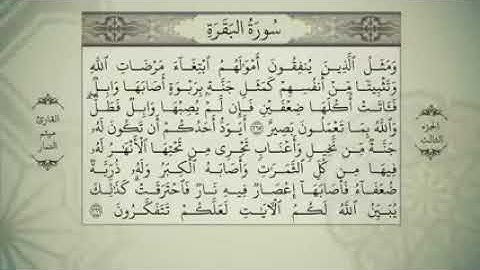 سُورَةُ البَقَرَةِ
وَمَثَلُ ٱلَّذِينَ يُنفِقُونَ أَمْوَٰلَهُمُ ٱبْتِغَآءَ مَرْضَاتِ ٱللَّهِ
وَتَثْبِيتًا مِّنْ أَنفُسِهِمْ كَمَثَلِ جَنَّةٍۭ بِرَبْوَةٍ أَصَابَهَا وَابِلٌ
فَـَٔاتَتْ أُكُلَهَا ضِعْفَيْنِ فَإِن لَّمْ يُصِبْهَا وَابِلٌ فَطَلٌّ ۗ
وَٱللَّهُ بِمَا تَعْمَلُونَ بَصِيرٌ ٢٦٥ أَيَوَدُّ أَحَدُكُمْ أَن تَكُونَ لَهُۥ
جَنَّةٌ مِّن نَّخِيلٍ وَأَعْنَابٍ تَجْرِى مِن تَحْتِهَا ٱلْأَنْهَٰرُ لَهُۥ
فِيهَا مِن كُلِّ ٱلثَّمَرَٰتِ وَأَصَابَهُ ٱلْكِبَرُ وَلَهُۥ ذُرِّيَّةٌ
ضُعَفَآءُ فَأَصَابَهَآ إِعْصَارٌ فِيهِ نَارٌ فَٱحْتَرَقَتْ ۗ كَذَٰلِكَ
يُبَيِّنُ ٱللَّهُ لَكُمُ ٱلْـَٔايَٰتِ لَعَلَّكُمْ تَتَفَكَّرُونَ ٢٦٦
الجزء
الثالث
القارئ
ميثم
التمار